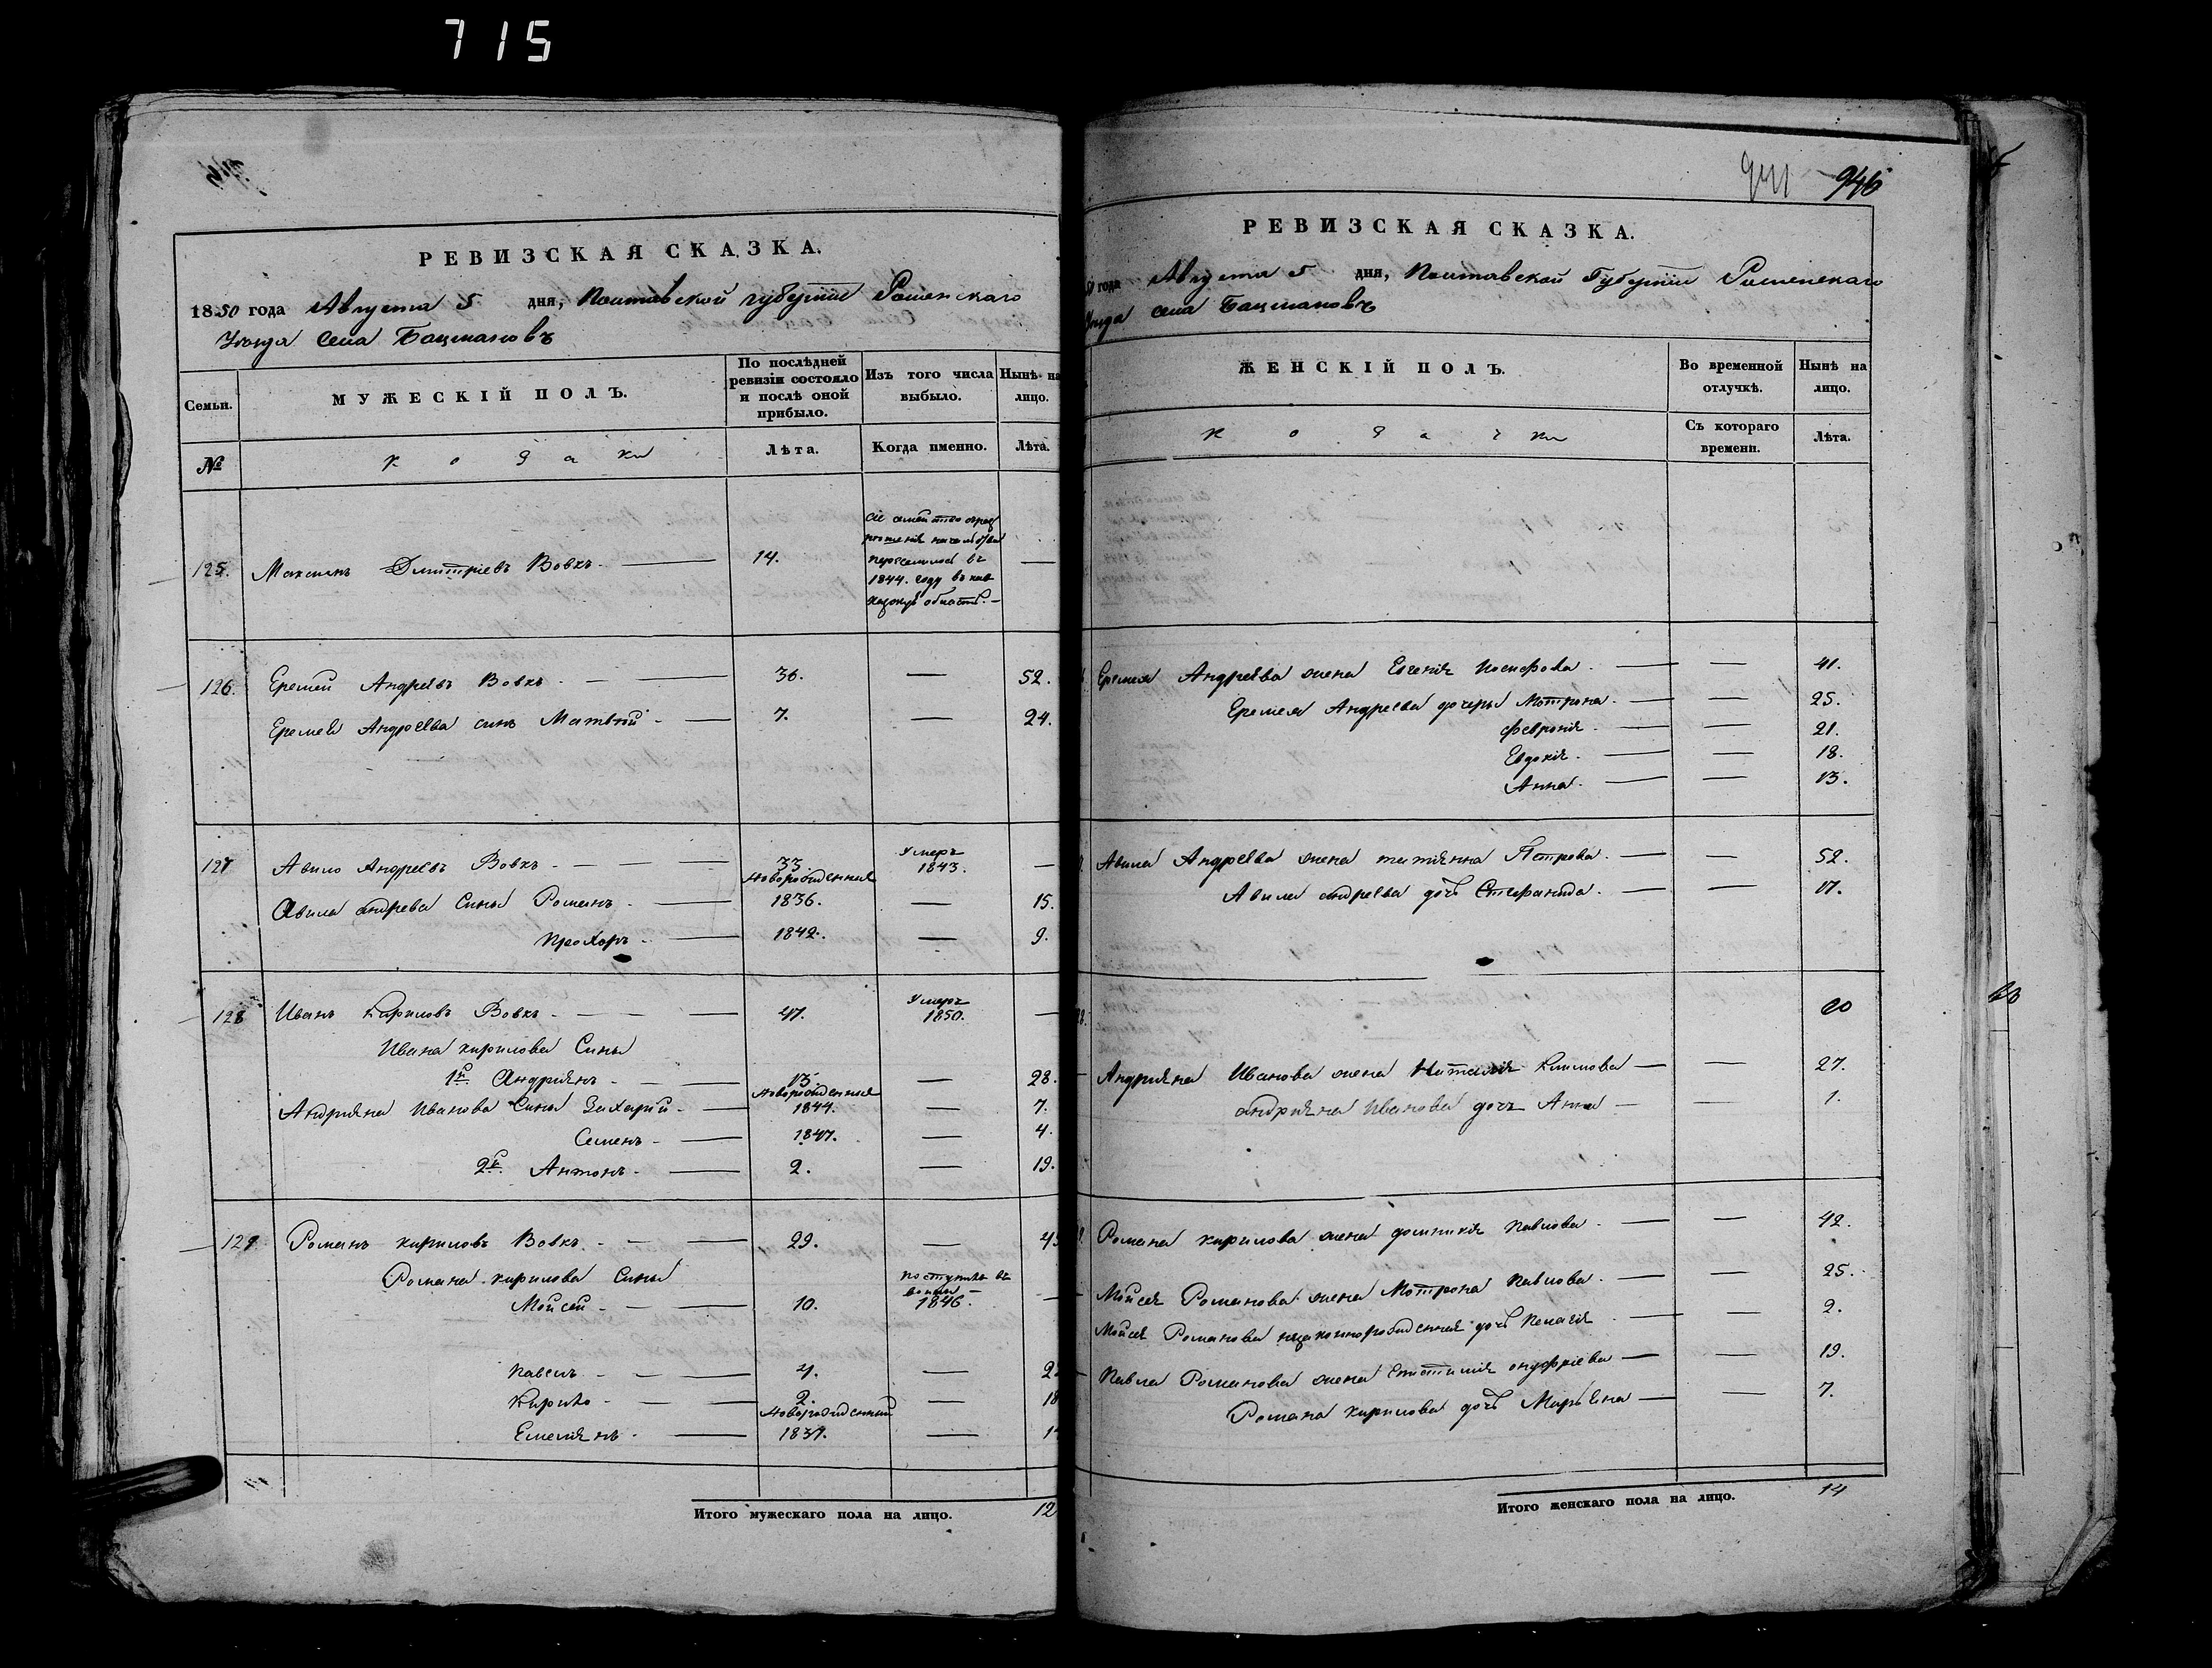 715
РЕВИЗСКАЯ СКАЗКА.
1850 года Августа 5 дня, Полтавской губернiи Роменскаго
Уѣзда Села Бацмановъ
Семьи.
МУЖЕСКІЙ ПОЛЪ.
По послѣдней ревизіи состояло и послѣ оной прибыло.
Изъ того числа выбыло.
Нынѣ на лицо.
№
козаки
Лѣта.
Когда именно.
Лѣта.
125. Максимъ Дмитріевъ Вовкъ. — 14. —
Сіе семейство
переселилось въ
1844. году въ кав
казскую область. —
126. Еремей Андреевъ Вовкъ. — 36. — 52.
Еремея Андреева сынъ Матвѣй — 7. — 24.
127 Авило Андреевъ Вовкъ. — 33. Умеръ 1843. —
новорожденныя
Авила Андреева Сыны Романъ. — 1836. — 15.
Прохоръ — 1842. — 9.
128 Иванъ Кириловъ Вовкъ. — 47. Умеръ 1850. —
Ивана Кирилова Сыны
1й Андріянъ. — 13. — 28.
новорожденныя
Андріяна Иванова Сыны Захарій — 1844. — 7.
Семенъ — 1847. — 4.
2й Антонъ. — 2. — 19.
129 Романъ Кириловъ Вовкъ. — 29. — 4
Романа Кирилова Сыны
Мойсей — 10. поступилъ въ 1846. —
Павелъ — 4. — 2
Кирило — 2. — 18
новорожденный
Емеліянъ. — 1837. — 1
Итого мужескаго пола на лицо. 12
946
РЕВИЗСКАЯ СКАЗКА.
года Августа 5 дня, Полтавской Губернiи Роменскаго
Уѣзда села Бацмановъ
ЖЕНСКІЙ ПОЛЪ.
Во временной отлучкѣ.
Нынѣ на лицо.
козачки
Съ котораго времени.
Лѣта.
Еремея Андреева жена Евгенія Іосифова. — — 41.
Еремея Андреева дочеры Мотрона. — — 25.
Февронія. — — 21.
Евдокія. — — 18.
Анна. — — 13.
Авила Андреева жена Татіянна Петрова. — — 52.
Авила Андреева дочь Стефанида. — — 17.
20
Андріяна Иванова жена Наталія Климова — — 27.
Андріяна Иванова дочь Анна — — 1.
Романа Кирилова жена Домникія Павлова. — — 42.
Мойсея Романова жена Мотрона Павлова. — — 25.
Мойсея Романова незаконнорожденная дочь Пелагія — — 2.
Павла Романова жена Евтимія Онуфріева — — 19.
Романа Кирилова дочь Марьяна — — 7.
Итого женскаго пола на лицо. 14